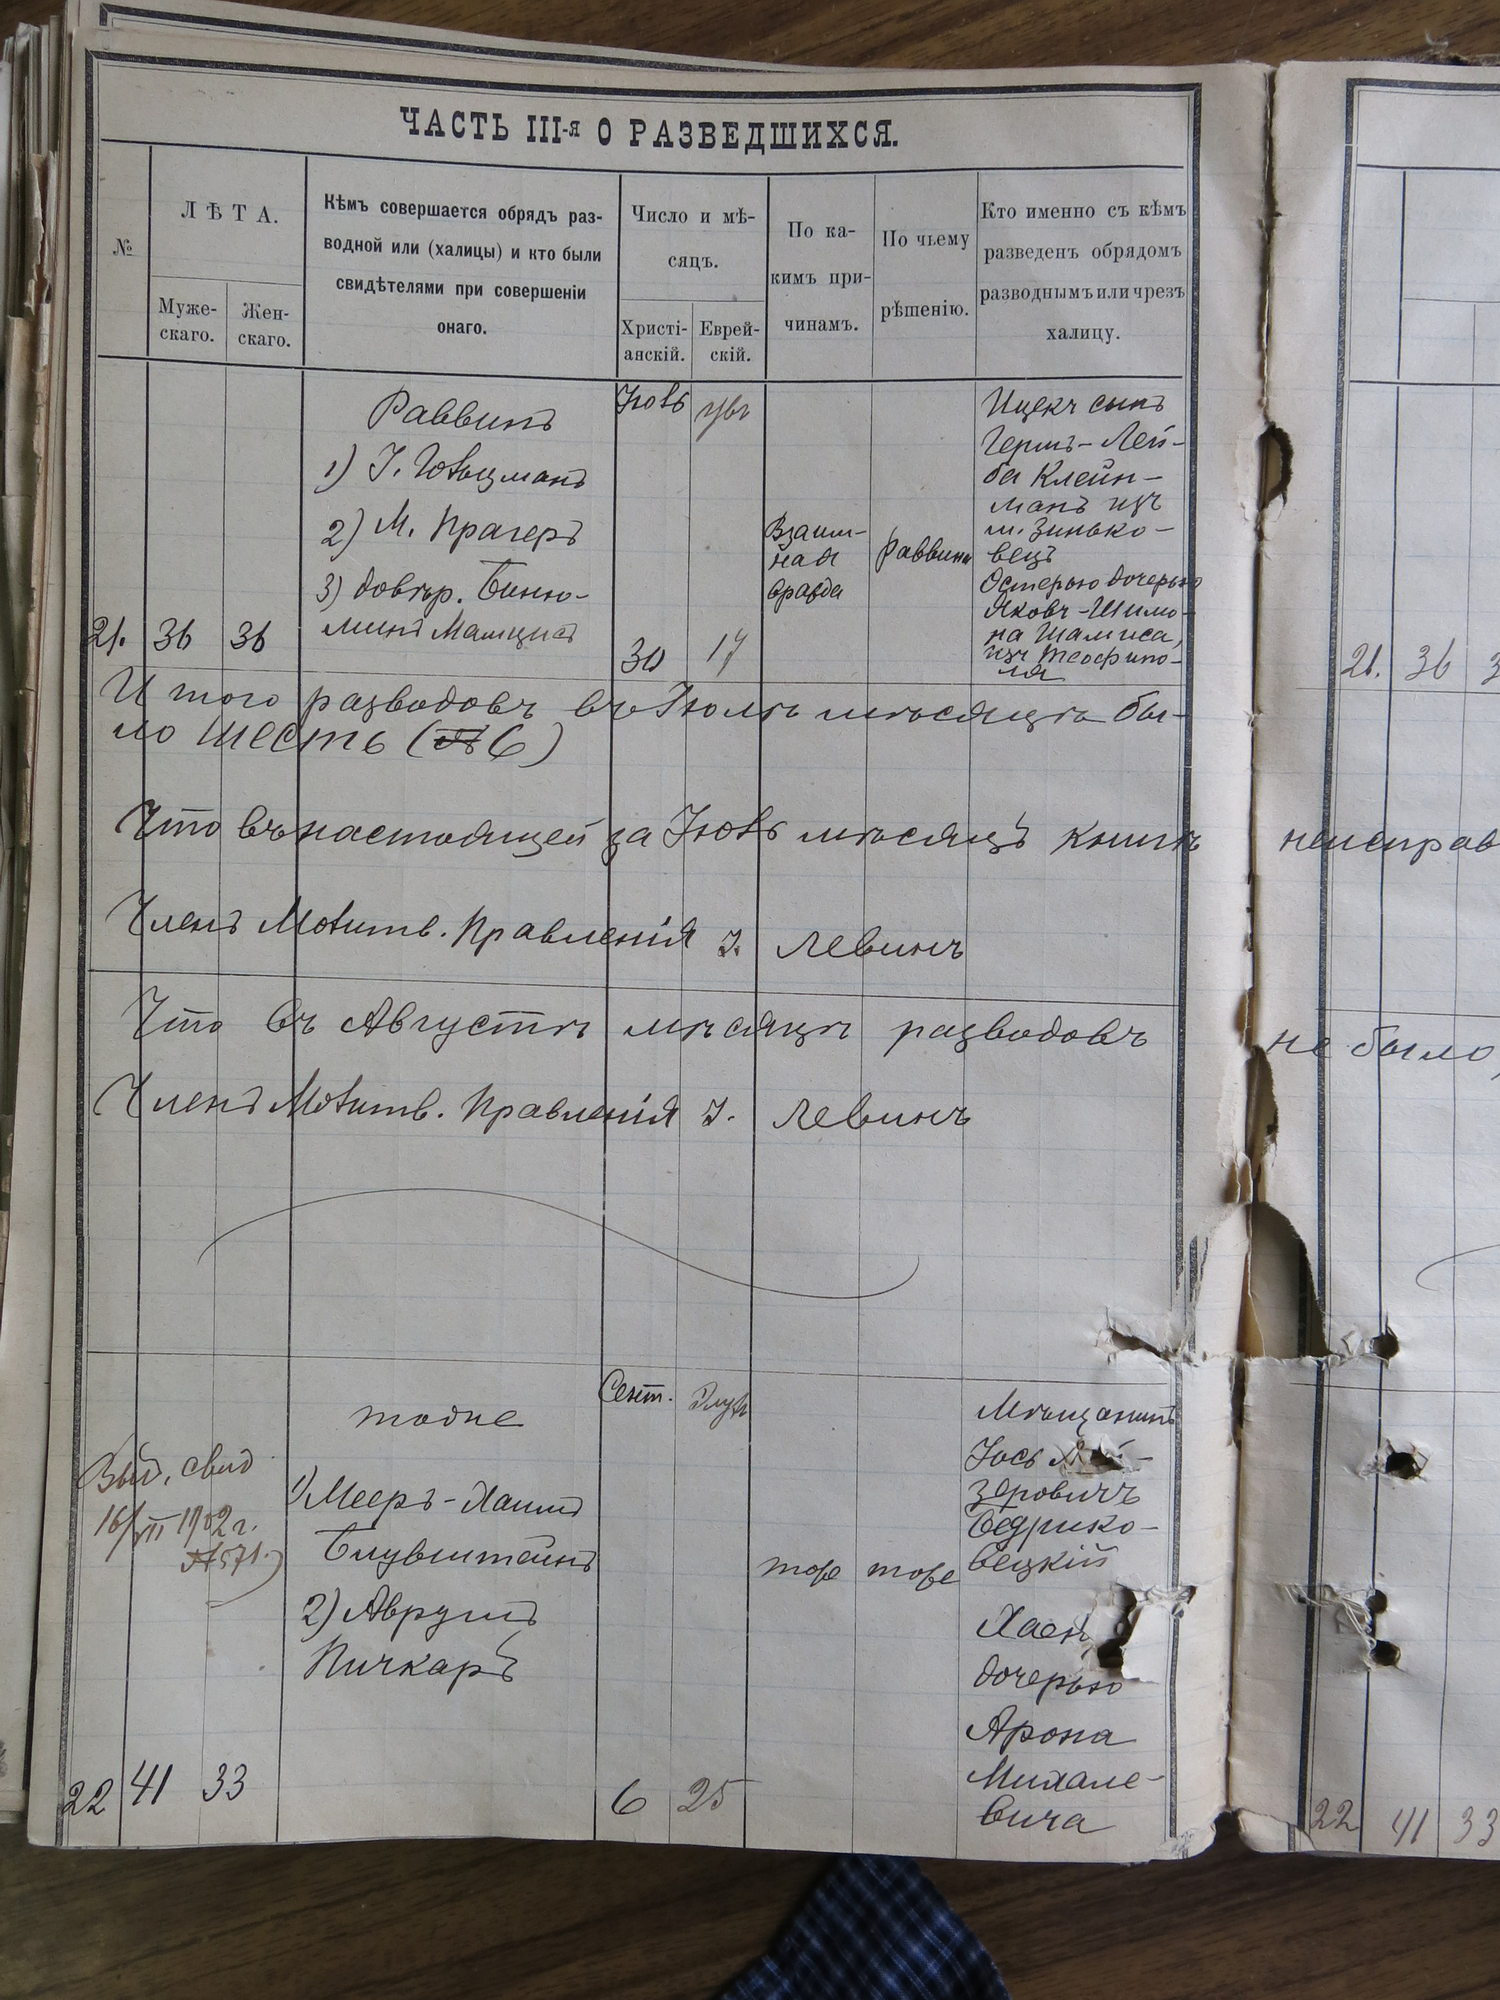 ЧАСТЬ III-я О РАЗВЕДШИХСЯ.
№
ЛѢТА.
Муже-
скаго.
Жен-
скаго.
Кѣмъ совершается обрядъ раз-
водной или (халицы) и кто были
свидѣтелями при совершеніи
онаго.
Число и мѣ-
сяцъ.
Христі-
анскій.
Еврей-
скій.
По ка-
кимъ при-
чинамъ.
По чьему
рѣшенію.
Кто именно съ кѣмъ
разведенъ обрядомъ
разводнымъ или чрезъ
халицу.
21. 36 36
Раввинъ
1) І.
2) М. Прагеръ
3) довѣр. Беню-
минъ
Іюль
30
17
Взаим-
ная
вражда
Раввина
Ицекъ сынъ
Гершъ-Лей-
ба Клейн-
манъ изъ
м. Зинько-
вецъ
Остерью дочерью
Яковъ-Шимо-
на Шамиса,
изъ Теофипо-
ля
21. 36 3
Итого разводовъ въ Іюлѣ мѣсяцѣ бы-
ло шесть (№ 6)
Что въ настоящей за Іюль мѣсяцъ книгѣ неисправ
Членъ Молитв. Правленія І. Левинъ
Что въ Августѣ мѣсяцѣ разводовъ не было,
Членъ Молитв. Правленія І. Левинъ
Выд. свид
16/VII 1902 г.
№ 571.)
22 41 33
тоже
1) Мееръ-Хаимъ
Блувштейнъ
2) Аврумъ
Пичкаръ
Сент.
6
Элулъ
25
тоже
тоже
Мѣщанинъ
Іось Лей-
зеровичъ
Бедрико-
вецкій
Хаей
дочерью
Арона
Михале-
вича
22 41 33